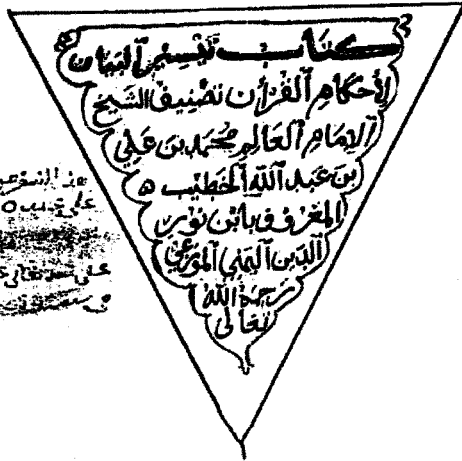 كتاب تيسير البيان
لأحكام القرآن تصنيف الشيخ
الإمام العالم محمد بن علي
بن عبد الله الخطيب
المعروف بابن نور
الدين اليمني الموزعي
رحمة الله
تعالى